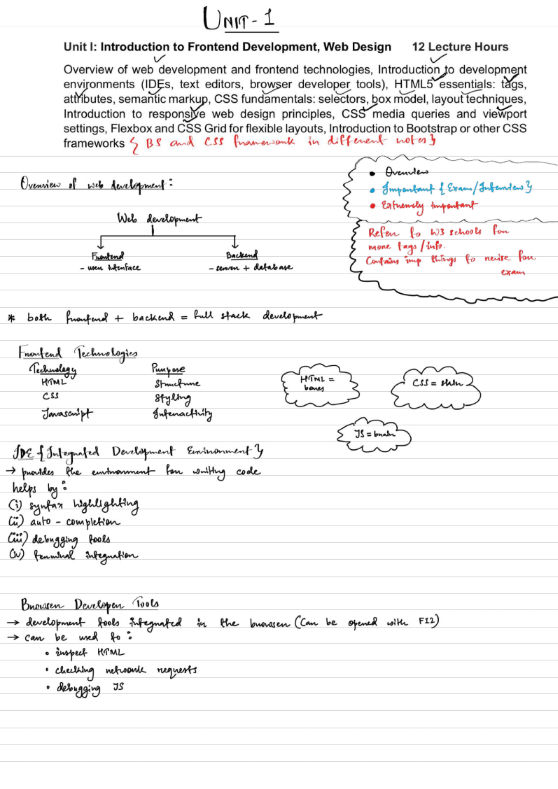 UNIT - 1
Unit I: Introduction to Frontend Development, Web Design 12 Lecture Hours
Overview of web development and frontend technologies, Introduction to development
environments (IDEs, text editors, browser developer tools), HTML5 essentials: tags,
attributes, semantic markup, CSS fundamentals: selectors, box model, layout techniques,
Introduction to responsive web design principles, CSS media queries and viewport
settings, Flexbox and CSS Grid for flexible layouts, Introduction to Bootstrap or other CSS
frameworks { BS and CSS framework in different notes }
• Overview
• Important { Exam/Interview }
• Extremely important
Refer to W3 schools for
more tags/info.
Contains imp things to revise for
exam
Overview of web development :
Web development
Frontend Backend
- user interface - server + database
* both frontend + backend = full stack development
Frontend Technologies
Technology Purpose
HTML Structure
CSS Styling
Javascript Interactivity
HTML =
bones
CSS = skin
JS = brain
IDE { Integrated Development Environment }
→ provides the environment for writing code
helps by :
(i) syntax highlighting
(ii) auto - completion
(iii) debugging tools
(iv) terminal integration
Browser Developer Tools
→ development tools integrated in the browser (Can be opened with F12)
→ can be used to :
• inspect HTML
• checking network requests
• debugging JS